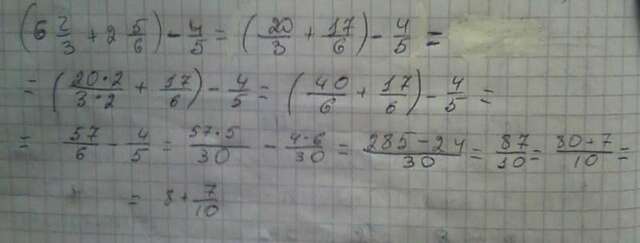 (6 2/3 + 2 5/6) - 4/5 = (20/3 + 17/6) - 4/5 =
= (20·2/3·2 + 17/6) - 4/5 = (40/6 + 17/6) - 4/5 =
= 57/6 - 4/5 = 57·5/30 - 4·6/30 = 285-24/30 = 87/10 = 80+7/10 =
= 8 + 7/10